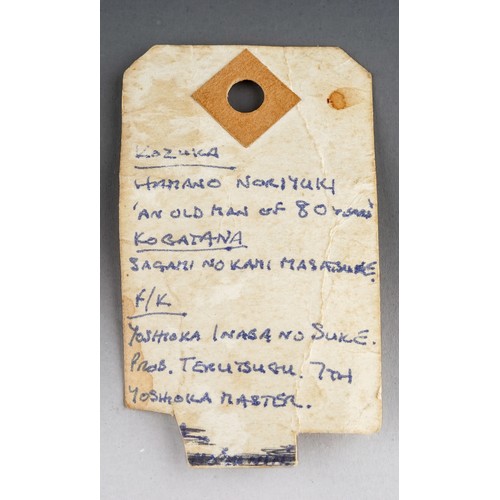 KOZUKA
HAMANO NORIYUKI
'AN OLD MAN OF 80 YEARS'
KOGATANA
SAGAMI NO KAMI MASATSUNE.
F/K
YOSHIOKA INABA NO SUKE.
PROB. TERUTSUGU. 7TH
YOSHIOKA MASTER.